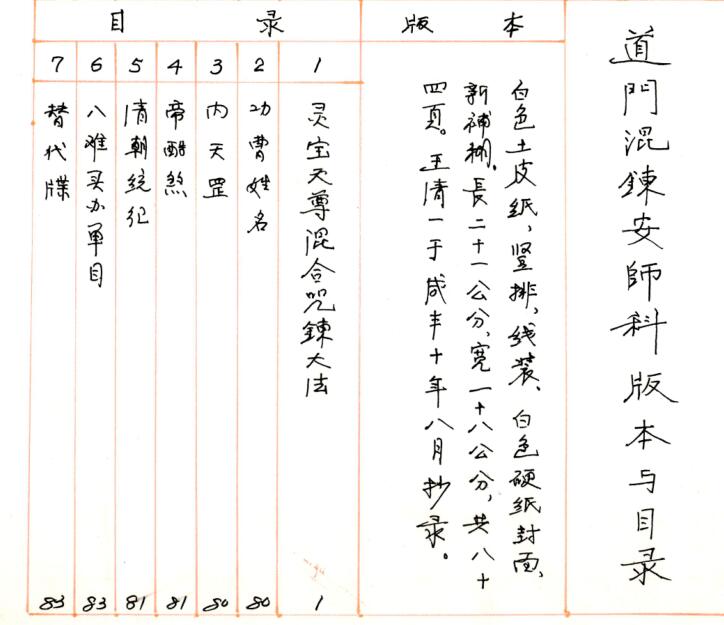 道門混鍊安師科版本与目录
版本
白色土皮纸，竖排，线装、白色硬纸封面，
新補糊。長二十一公分、宽一十八公分，共八十
四頁。王清一于咸丰十年八月抄录。
目录
1 灵宝天尊混合咒鍊大法 1
2 功曹姓名 80
3 内天罡 80
4 帝酷煞 81
5 清朝统纪 81
6 八难买办单目 83
7 替代牒 83